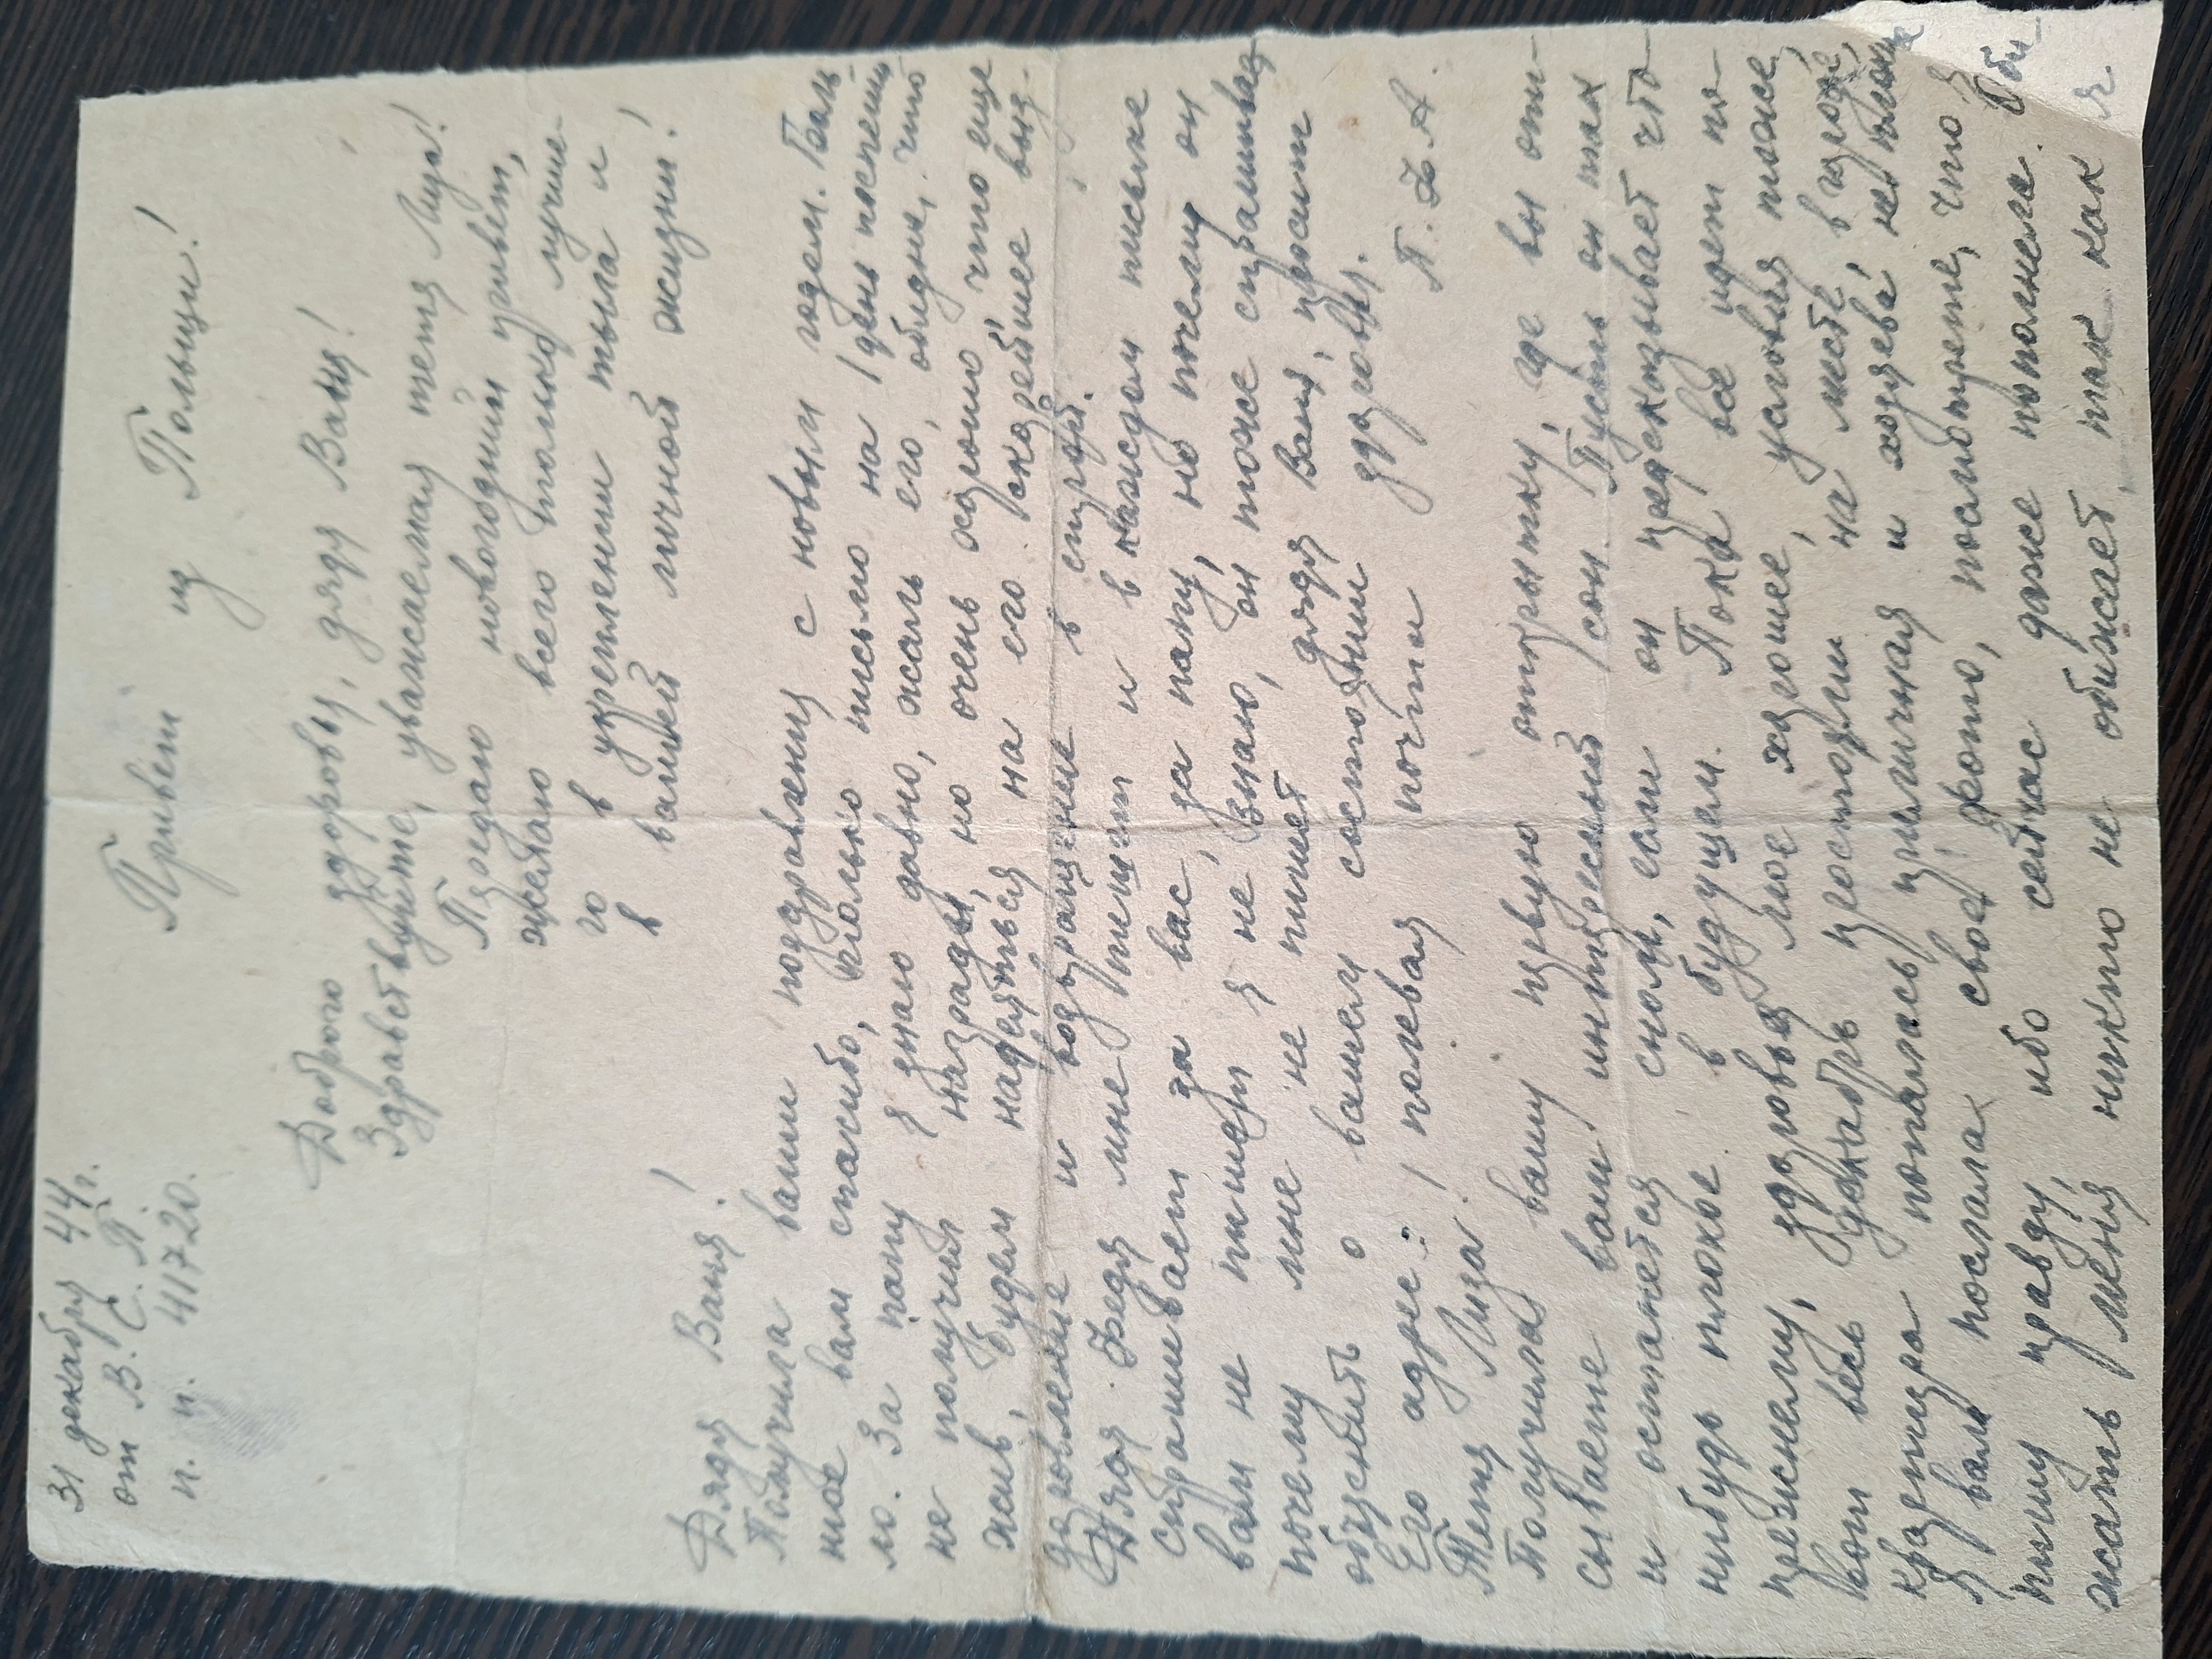 31 декабря 44 г.
от В. С. П.
п. п. 41720.
Привет из Польши!
Доброго здоровья, дядя Ваня!
Здравствуйте, уважаемая тетя Лиза!
Передаю новогодний привет,
желаю всего только лучше-
го в укреплении тыла и
в вашей личной жизни!
Дядя Ваня!
Получила ваши поздравления с новым годом. Боль-
шое вам спасибо, только письмо на 1 день
ло. За папу я знаю давно, жаль его, обидно, что
не получил награды, но очень хорошо, что еще
жив, будем надеяться на его скорейшее выз-
доровление и возвращение в строй.
Дядя Федя мне пишет и в каждом письме
спрашивает за вас, за папу, но почему он
вам не пишет я не знаю, он тоже спрашивает
почему мне не пишет дядя Ваня, просит
объяснить о вашем состоянии здоровья.
Его адрес: полевая почта
Тетя Лиза!
Получила вашу открытку, где вы опи-
сываете ваш интересный сон. Пусть он так
и останется сном, если он предсказывает что
нибудь плохое в будущем. Пока все идет по-
прежнему, здоровье мое хорошее, условия тоже,
вот весь декабрь простояли на месте, в городе,
квартира попалась приличная и хозяева не плохие
Я вам послала свое фото, посмотрите, что я
пишу правду, ибо сейчас даже пополнела. Оби-
жать меня никто не обижает, так как я